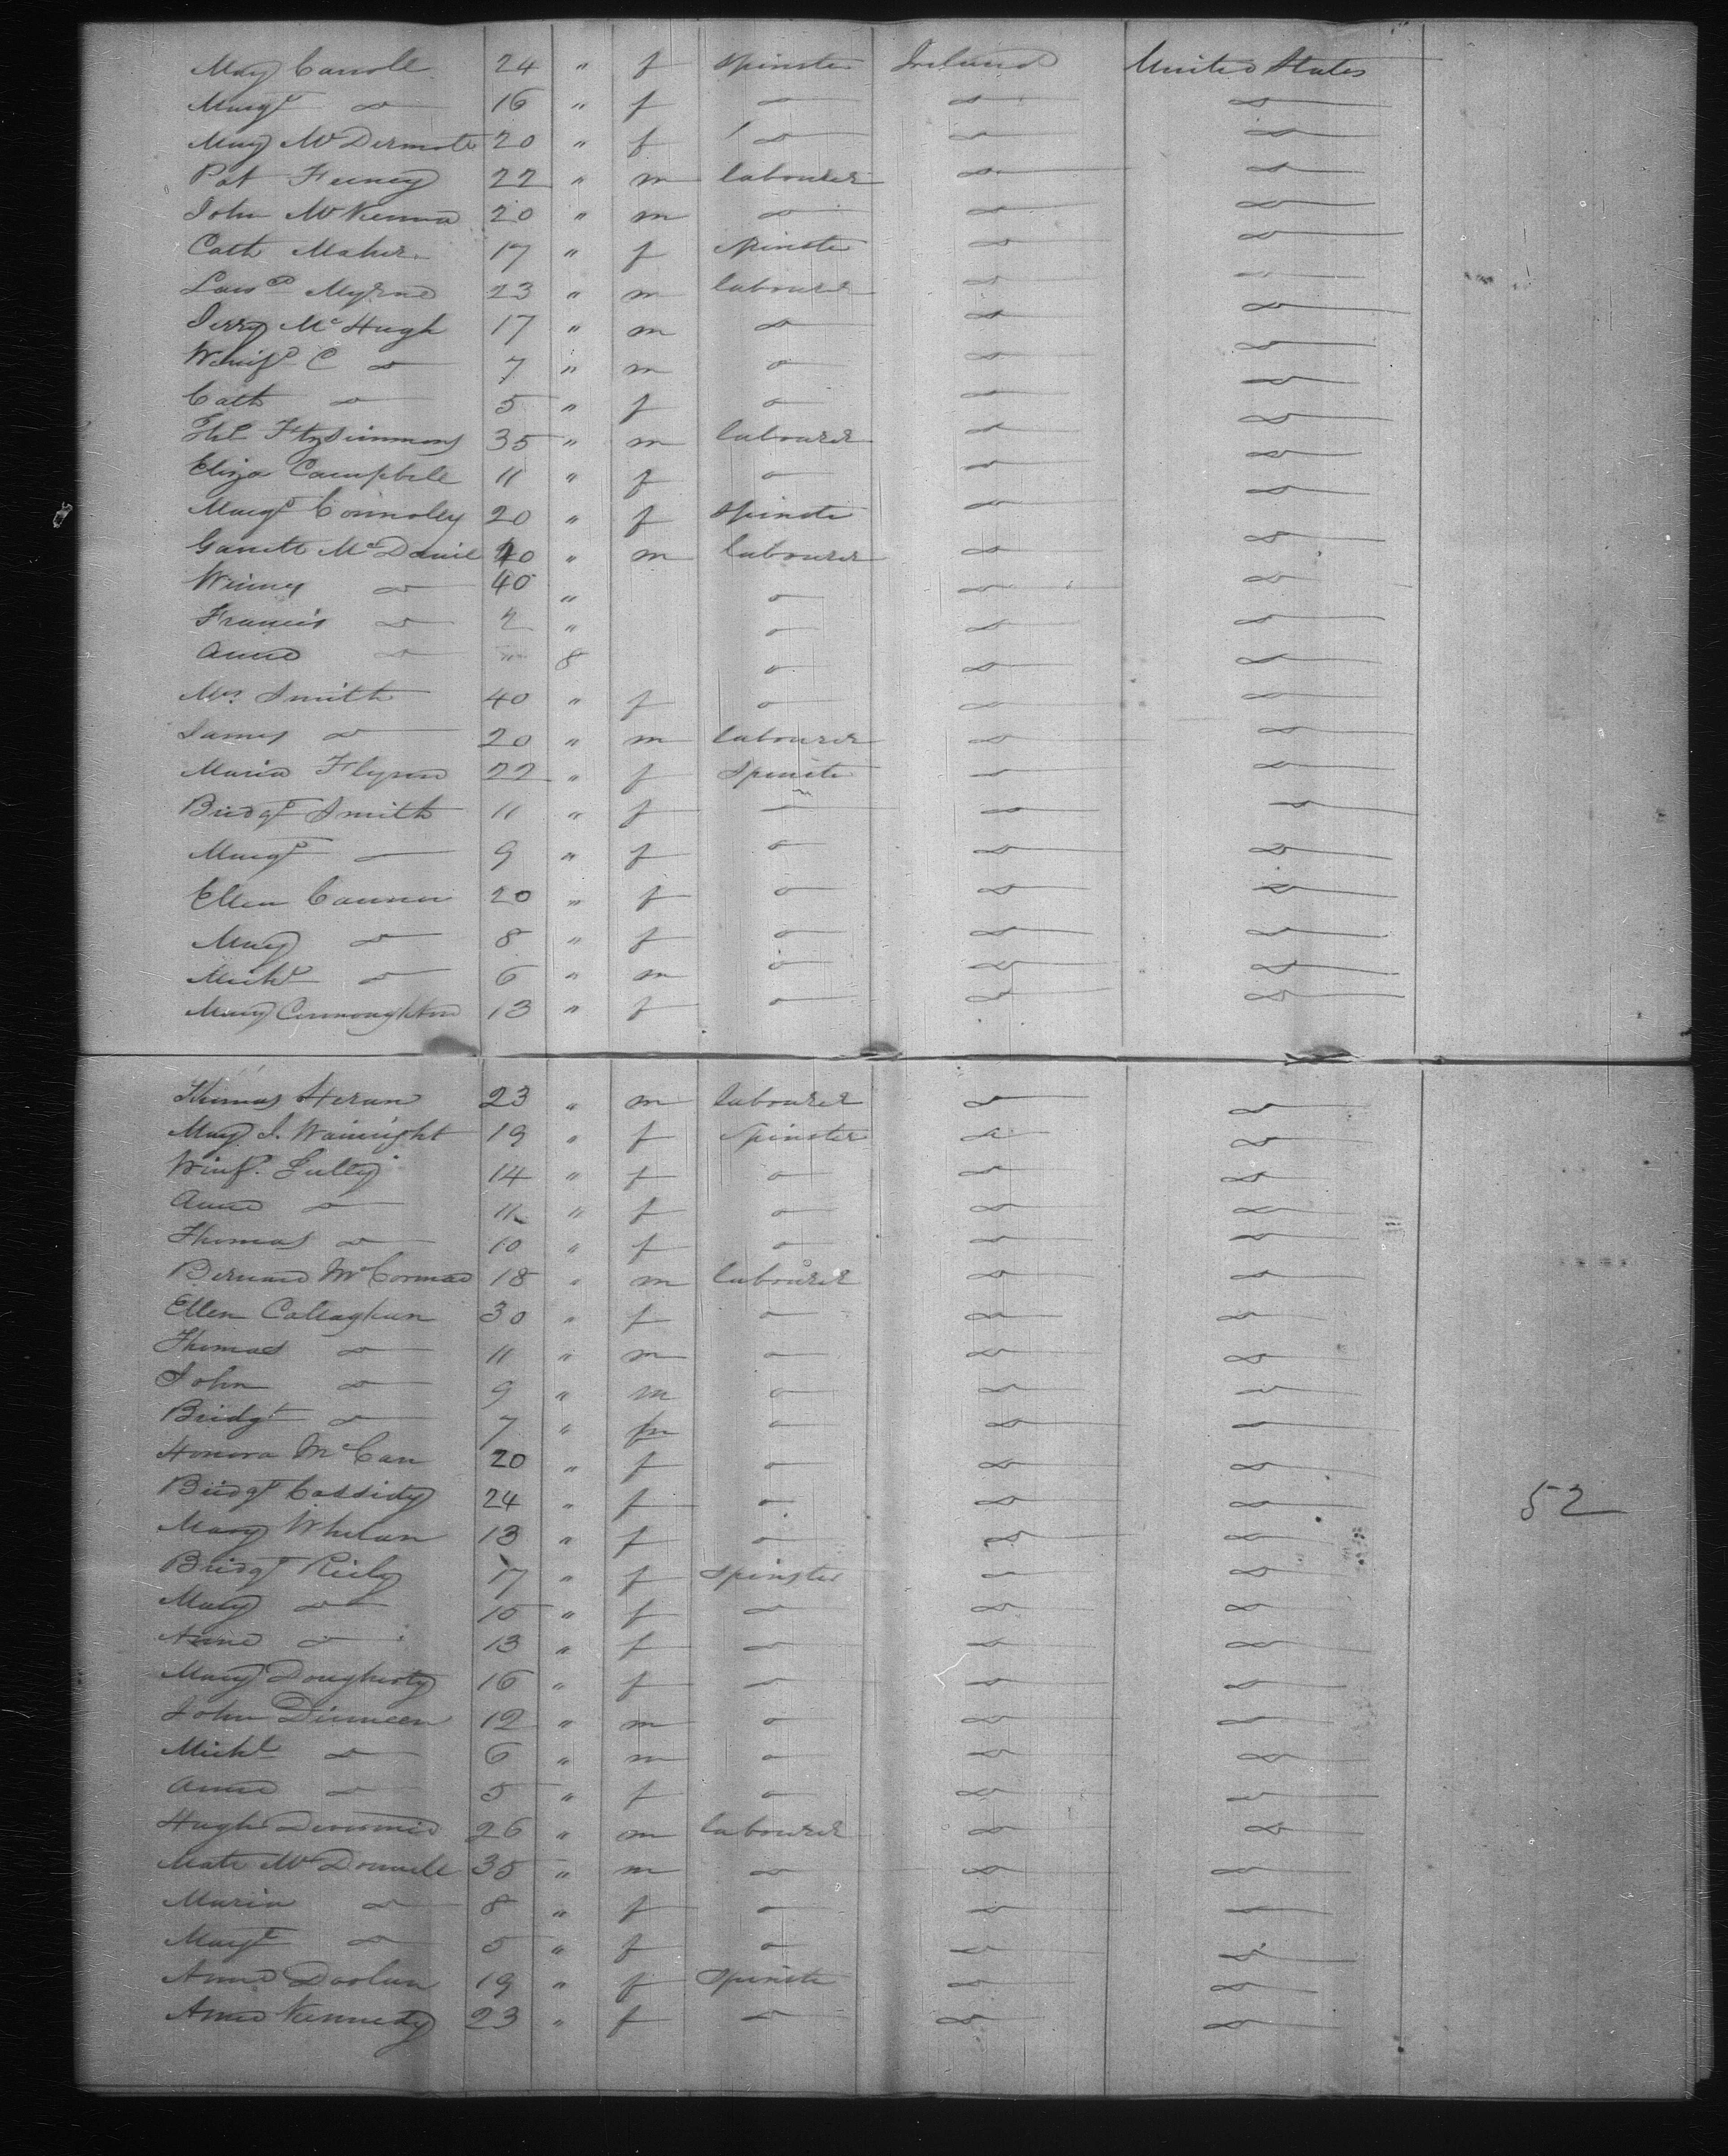 Mary Carroll 24 " f spinster Ireland United States
Margt do 16 " f do do do
Mary McDermott 20 " f do do do
Pat Feeney 22 " m labourer do do
John McKenna 20 " m do do do
Cath Maher 17 " f spinster do do
23 " m labourer do do
Jerry McHugh 17 " m do do do
Winifd C do 7 " m o do do
Cath do 5 " f o do do
Fitzsimmons 35 " m labourer do do
Eliza Campbell 11 " f o do do
Margt Connolley 20 " f spinster do do
Garrett McDaniel 40 " m labourer do do
Winney do 40 " o do do
Francis do 2 " o do do
Anne do " 8 o do do
Mrs Smith 40 " f o do do
James do 20 " m labourer do do
Maria Flynn 22 " f spinster do do
Bridgt Smith 11 " f o do do
Margt do 9 " f o do do
Ellen Cannon 20 " f o do do
Mary do 8 " f o do do
Michl do 6 " m o do do
Mary Connoughton 13 " f o do do
Thomas Heran 23 " m labourer do do
Mary J. Wainright 19 " f spinster do do
Winfd. 14 " f o do do
Anne do 11 " f o do do
Thomas do 10 " f o do do
Bernard McCormac 18 " m labourer do do
Ellen Callaghan 30 " f o do do
Thomas do 11 " m o do do
John do 9 " m o do do
Bridgt do 7 " o do do
Honora McCan 20 " f o do do
Bridgt Cassidy 24 " f o do do 52
Mary Whelan 13 " f o do do
Bridgt Reily 17 " f spinster do do
Mary do 15 " f do do do
Anne do 13 " f do do do
Mary Dougherty 16 " f do do do
John Dinneen 12 " m o do do
Michl do 6 " m o do do
Anne do 5 " f o do do
Hugh 26 " m labourer do do
Matt McDonnell 35 " m do do do
Maria do 8 " f o do do
Margt do 5 " f o do do
Anne Doolan 19 " f spinster do do
Anne Kennedy 23 " f do do do